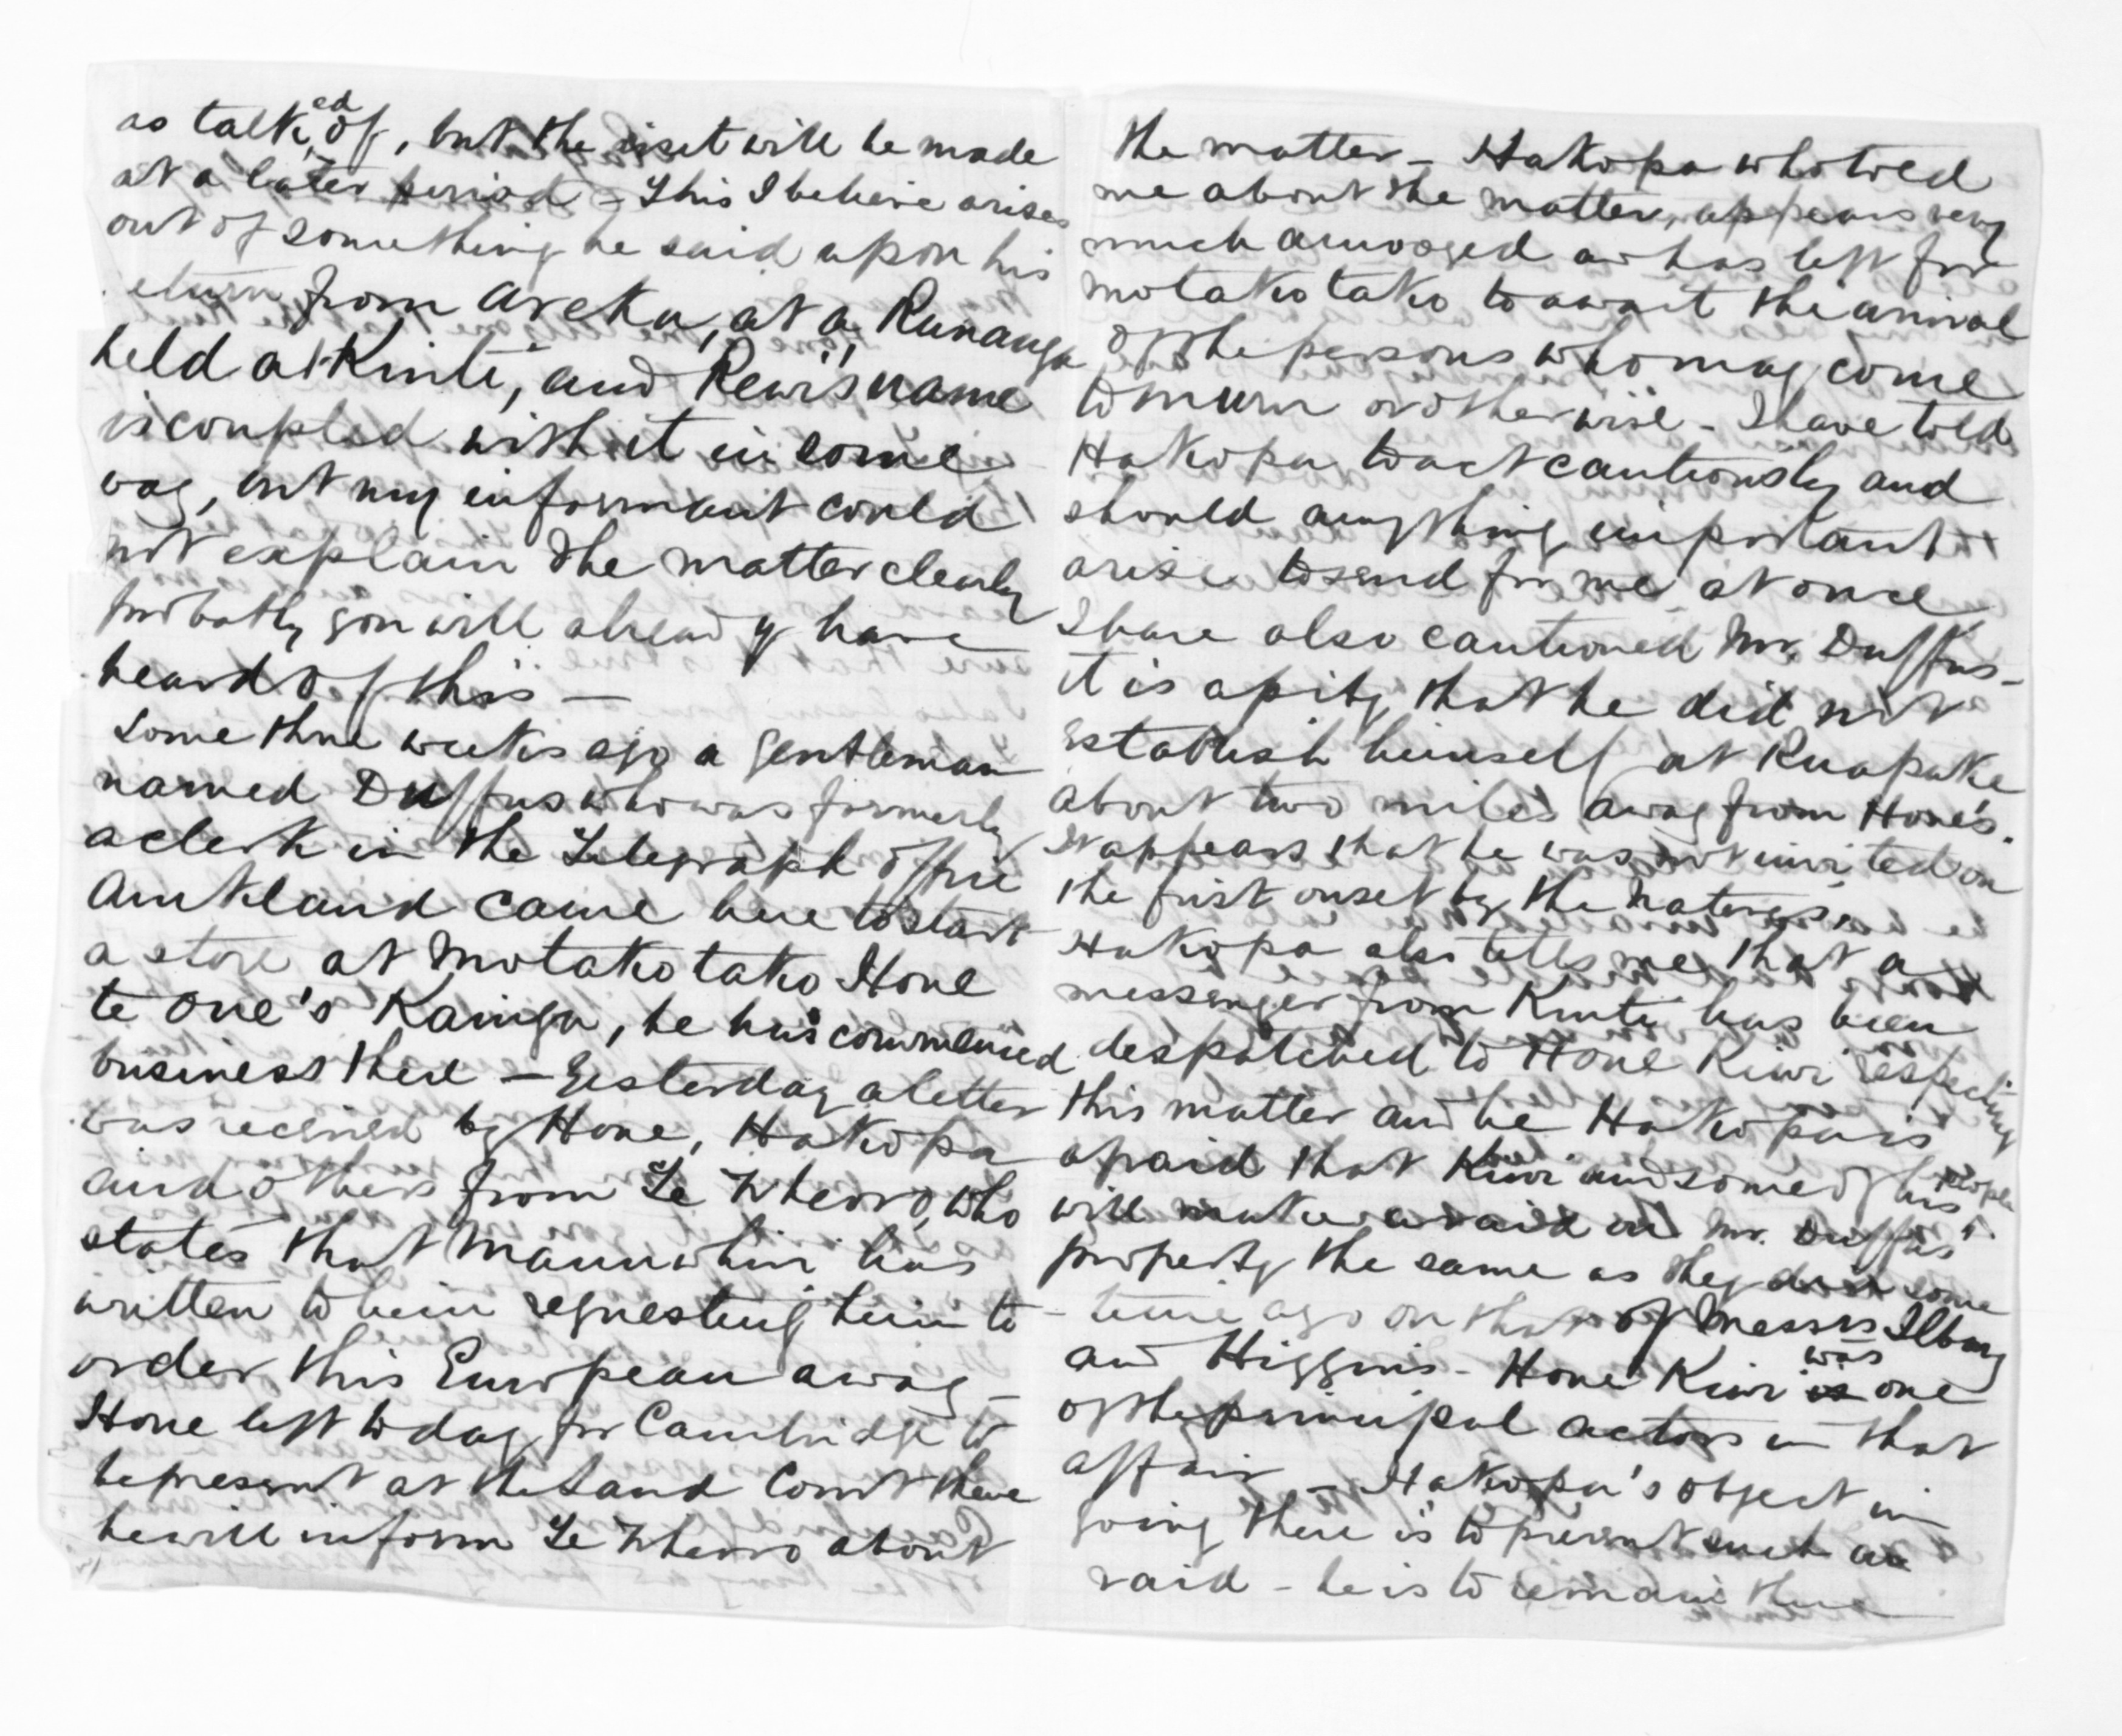 as talked of, but the visit will be made
at a later period – This I believe arises
out of something he said upon his
return from Areka, at a Runanga
held at Kuiti, and Rewi's name
is coupled with it in some
way, but my informant could
not explain the matter clearly
probably you will already have
heard of this —
Some three weeks ago a gentleman
named Duffus who was formerly
a clerk in the Telegraph office
Auckland came here to start
a store at Motakotako Hone
te One's Kainga, he has commenced
business there — Yesterday a letter
was received by Hone, Hakopa
and others from Te Wherro, who
states that Manuwhiri has
written to him requesting him to
order this European away –
Hone left today for Cambridge to
be present at the Land Court there
he will inform Te Wherro about
the matter – Hakopa who told
me about the matter, appears very
much annoyed and has left for
Motakotako to await the arrival
of the persons who may come
to muru or otherwise – I have told
Hakopa to act cautiously and
should anything important
arise to send for me at once
I have also cautioned Mr. Duffus –
it is a pity that he did not
establish himself at Ruapuke
about two miles away from Hone's.
It appears that he was not invited on
the first onset by the Natives.
Hakopa also tells me that a
messenger from Kuiti has been
despatched to Hone Kiwi respecting
this matter and he Hakopa is
afraid that Kiwi and some of his people
will make a raid on Mr. Duffus'
property the same as they did some
time ago on that of Messrs Ilbury
and Higgins – Hone Kiwi is was one
of the principal actors in that
affair – Hakopa's object in
going there is to prevent such a
raid – he is to remain there